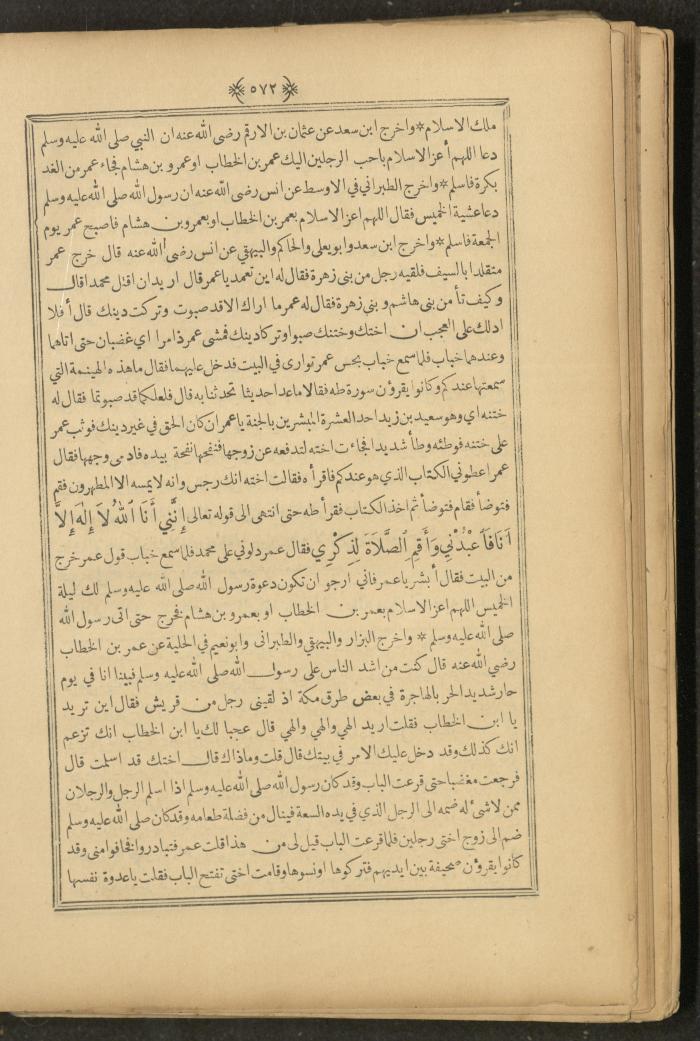 ٥٧٢
ملك الاسلام * واخرج ابن سعد عن عثمان بن الارقم رضى الله عنه ان النبي صلى الله عليه وسلم
دعا اللهم أعز الاسلام باحب الرجلين اليك عمر بن الخطاب او عمرو بن هشام فجاء عمر من الغد
بكرة فاسلم * واخرج الطبراني في الاوسط عن انس رضى الله عنه ان رسول الله صلى الله عليه وسلم
دعا عشية الخميس فقال اللهم اعز الاسلام بعمر بن الخطاب او بعمرو بن هشام فاصبح عمر يوم
الجمعة فاسلم * واخرج ابن سعد وابو يعلى والحاكم والبيهقي عن انس رضى الله عنه قال خرج عمر
متقلدا بالسيف فلقيه رجل من بنى زهرة فقال له اين تعمد يا عمر قال اريد ان اقتل محمدا قال
وكيف تأ من بنى هاشم و بني زهرة فقال له عمر ما اراك الا قد صبوت وتركت دينك قال أ فلا
ادلك على العجب ان اختك وختنك صبوا وتركا دينك فمشى عمر ذامرا اي غضبان حتى اتاهما
وعندهما خباب فلما سمع خباب بحس عمر توارى في البيت فدخل عليهما فقال ما هذه الهينمة التي
سمعتها عندكم وكانوا يقرؤن سورة طه فقالا ما عدا حديثا تحدثنا به قال فلعلكما قد صبوتما فقال له
ختنه اي وهو سعيد بن زيد احد العشرة المبشرين بالجنة يا عمر ان كان الحق في غير دينك فوثب عمر
على ختنه فوطئه وطأ شديدا فجاءت اخته لتدفعه عن زوجها فنفحها نفحة بيده فادمى وجهها فقال
عمر اعطوني الكتاب الذي هو عندكم فاقرأ ه فقالت اخته انك رجس وانه لا يمسه الا المطهرون فقم
فتوضأ فقام فتوضأ ثم اخذ الكتاب فقرأ طه حتى انتهى الى قوله تعالى إِنَّنِي أَنَا ٱللهُ لاَ إِلٰهَ إِلاَّ
أَنَا فَٱعْبُدْنِي وَأَقِمِ ٱلصَّلاَةَ لِذِكْرِي فقال عمر دلوني على محمد فلما سمع خباب قول عمر خرج
من البيت فقال أ بشر يا عمر فاني ارجو ان تكون دعوة رسول الله صلى الله عليه وسلم لك ليلة
الخميس اللهم اعز الاسلام بعمر بن الخطاب او بعمرو بن هشام فخرج حتى اتى رسول الله
صلى الله عليه وسلم * واخرج البزار والبيهقي والطبرانى وابو نعيم في الحلية عن عمر بن الخطاب
رضي الله عنه قال كنت من اشد الناس على رسول الله صلى الله عليه وسلم فبينا انا في يوم
حار شديد الحر بالهاجرة في بعض طرق مكة اذ لقينى رجل من قريش فقال اين تريد
يا ابن الخطاب فقلت اريد الهي والهي والهي قال عجبا لك يا ابن الخطاب انك تزعم
انك كذلك وقد دخل عليك الامر في بيتك قال قلت وما ذاك قال اختك قد اسلمت قال
فرجعت مغضبا حتى قرعت الباب وقد كان رسول الله صلى الله عليه وسلم اذا اسلم الرجل والرجلان
ممن لا شئ له ضمه الى الرجل الذي في يده السعة فينال من فضلة طعامه وقد كان صلى الله عليه وسلم
ضم الى زوج اختى رجلين فلما قرعت الباب قيل لى من هذا قلت عمر فتبادروا فخافوا منى وقد
كانوا يقرؤن صحيفة بين ايديهم فتركوها او نسوها وقامت اختى تفتح الباب فقلت يا عدوة نفسها